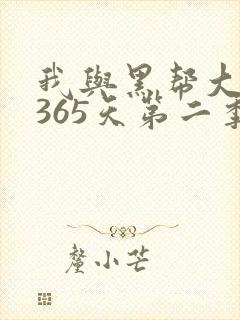 我與黑帮大
365天第二季
釐小芒